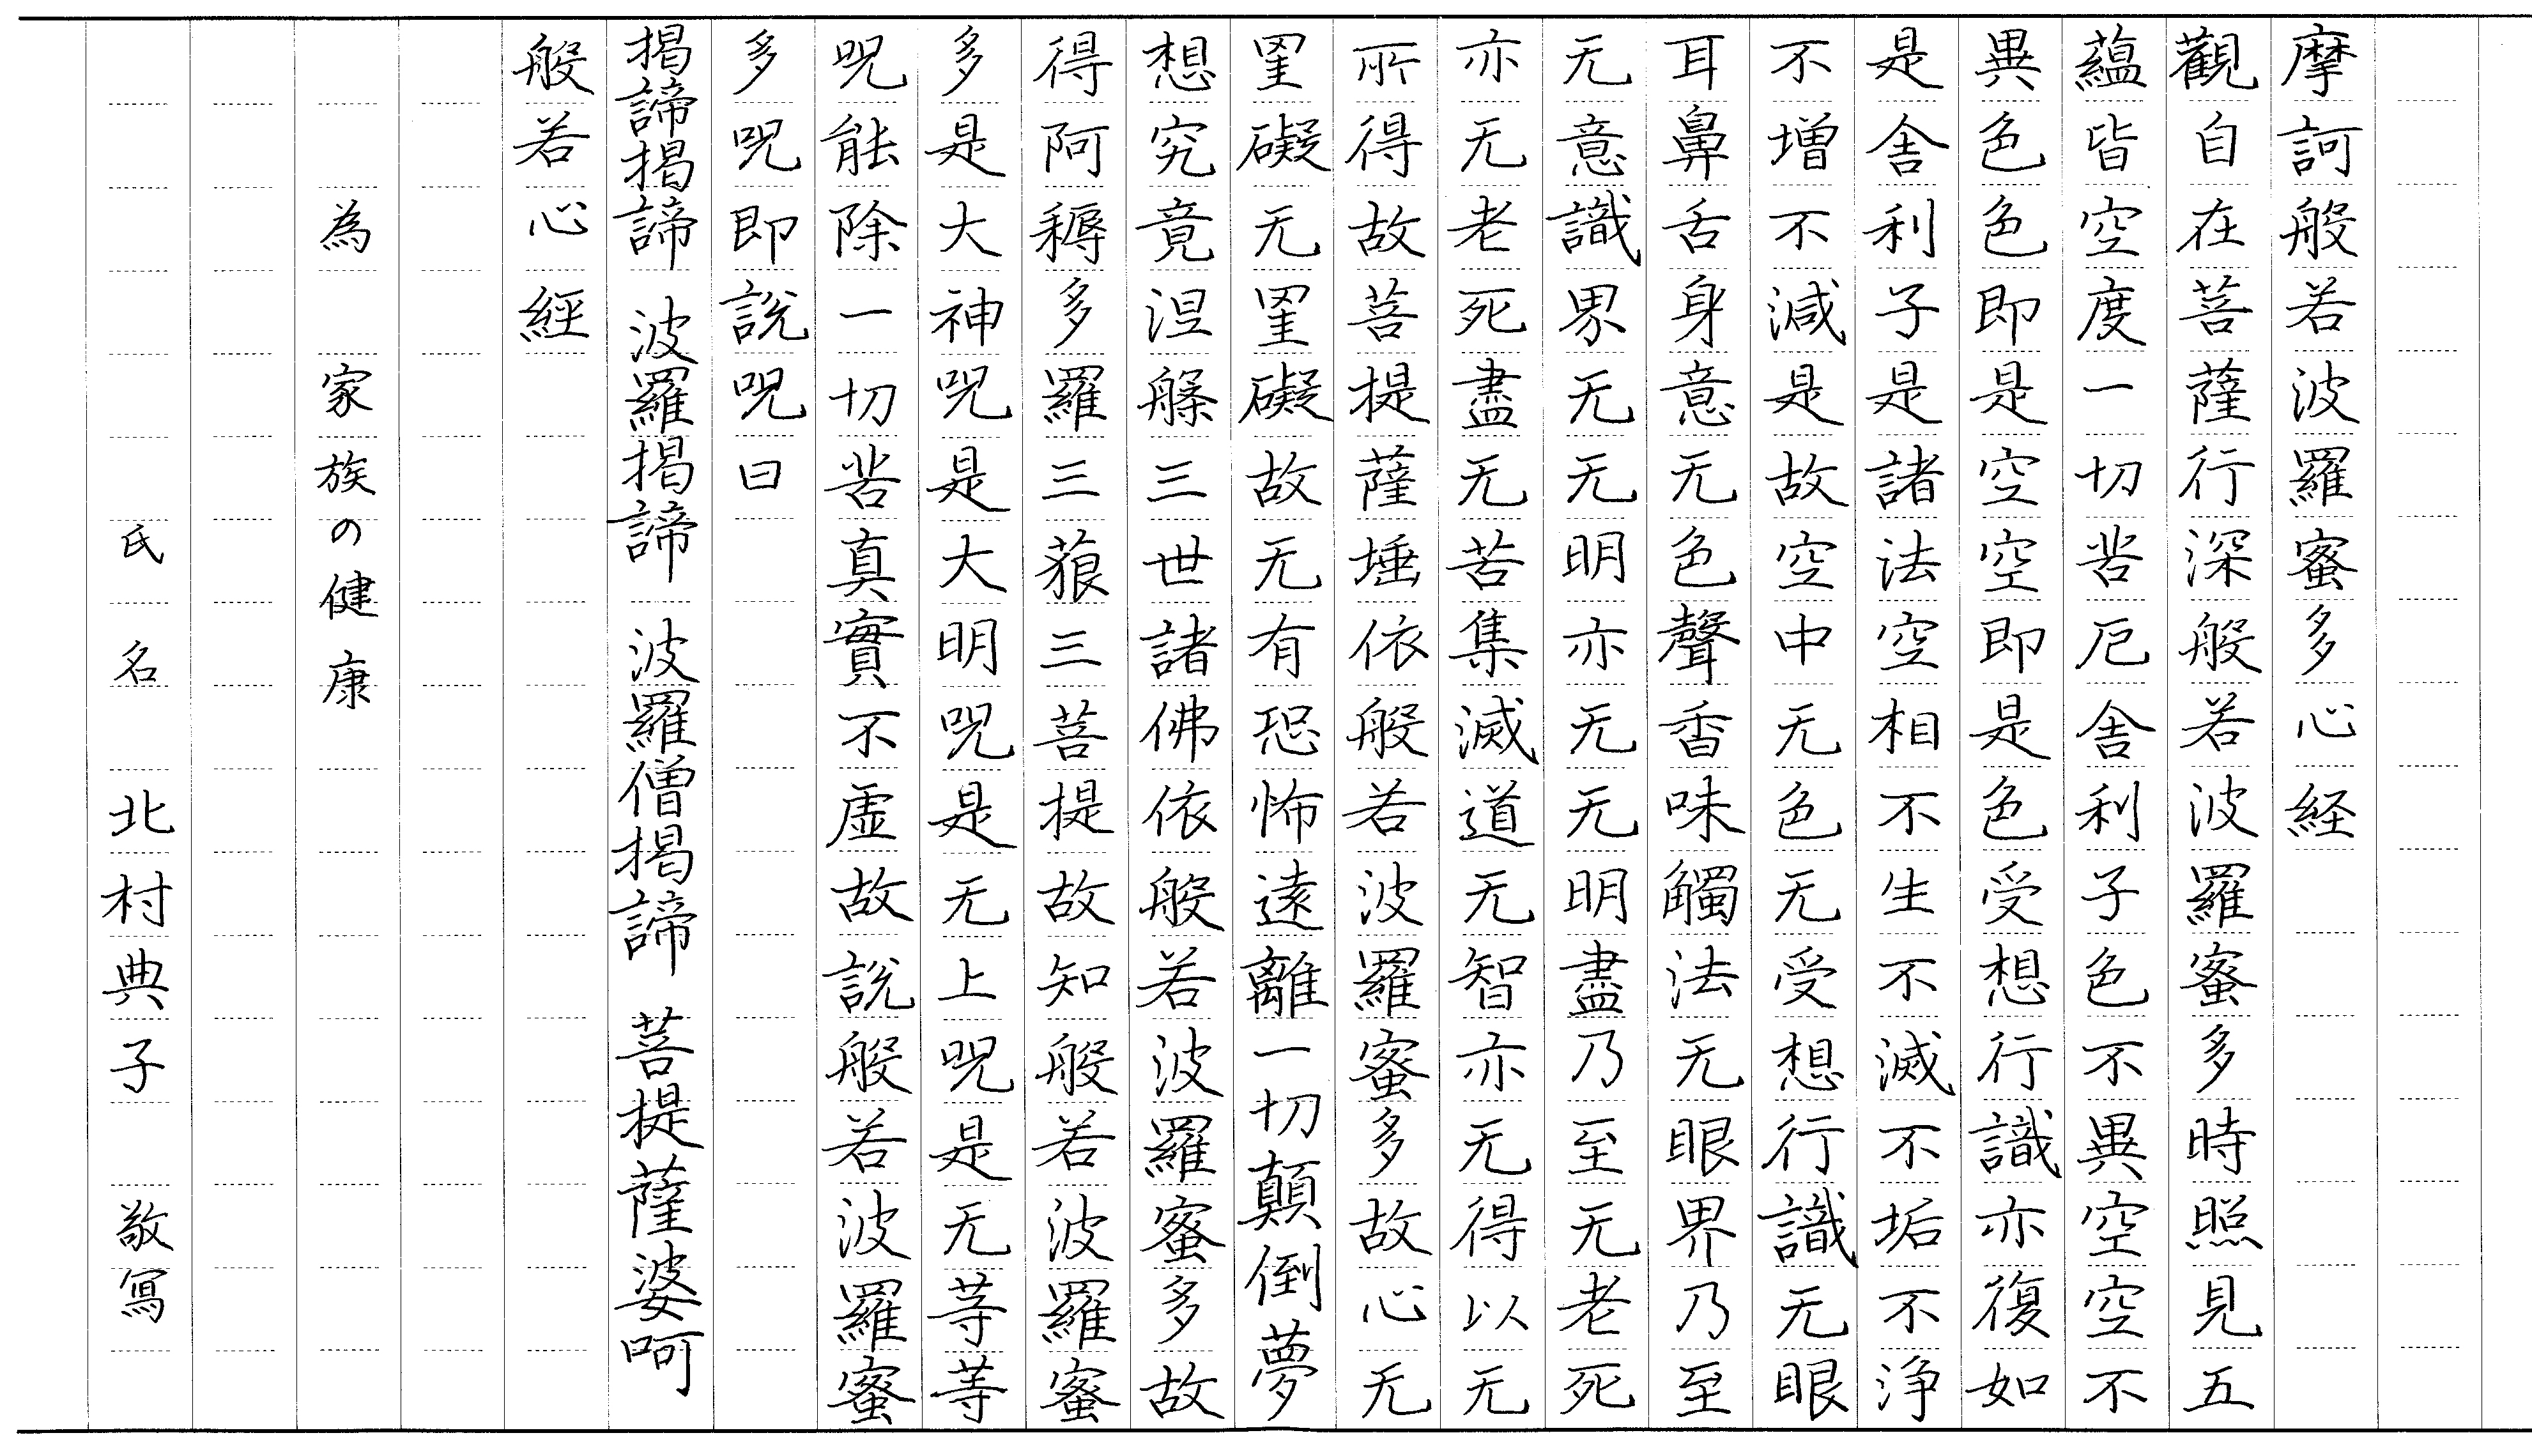 摩訶般若波羅蜜多心経
觀自在菩薩行深般若波羅蜜多時照見五
蘊皆空度一切苦厄舎利子色不異空空不
異色色即是空空即是色受想行識亦復如
是舎利子是諸法空相不生不滅不垢不浄
不増不減是故空中无色无受想行識无眼
耳鼻舌身意无色聲香味觸法无眼界乃至
无意識界无无明亦无无明盡乃至无老死
亦无老死盡无苦集滅道无智亦无得以无
所得故菩提薩埵依般若波羅蜜多故心无
罣礙无罣礙故无有恐怖遠離一切顛倒夢
想究竟涅槃三世諸佛依般若波羅蜜多故
得阿耨多羅三藐三菩提故知般若波羅蜜
多是大神呪是大明呪是无上呪是无等等
呪能除一切苦真實不虚故説般若波羅蜜
多呪即説呪曰
揭諦揭諦 波羅揭諦 波羅僧揭諦 菩提薩婆呵
般若心經
為 家族の健康
氏名 北村典子 敬寫